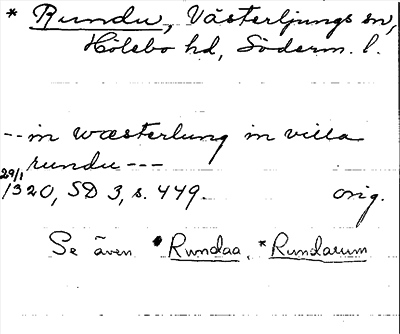 * Rundu, Västerljungs sn,
Hölebo hd, Söderm. l.
-- in wæsterlung in villa
rundu ---
29/1 1320, SD 3, s. 449. orig.
Se även *Rundaa, *Rundarum